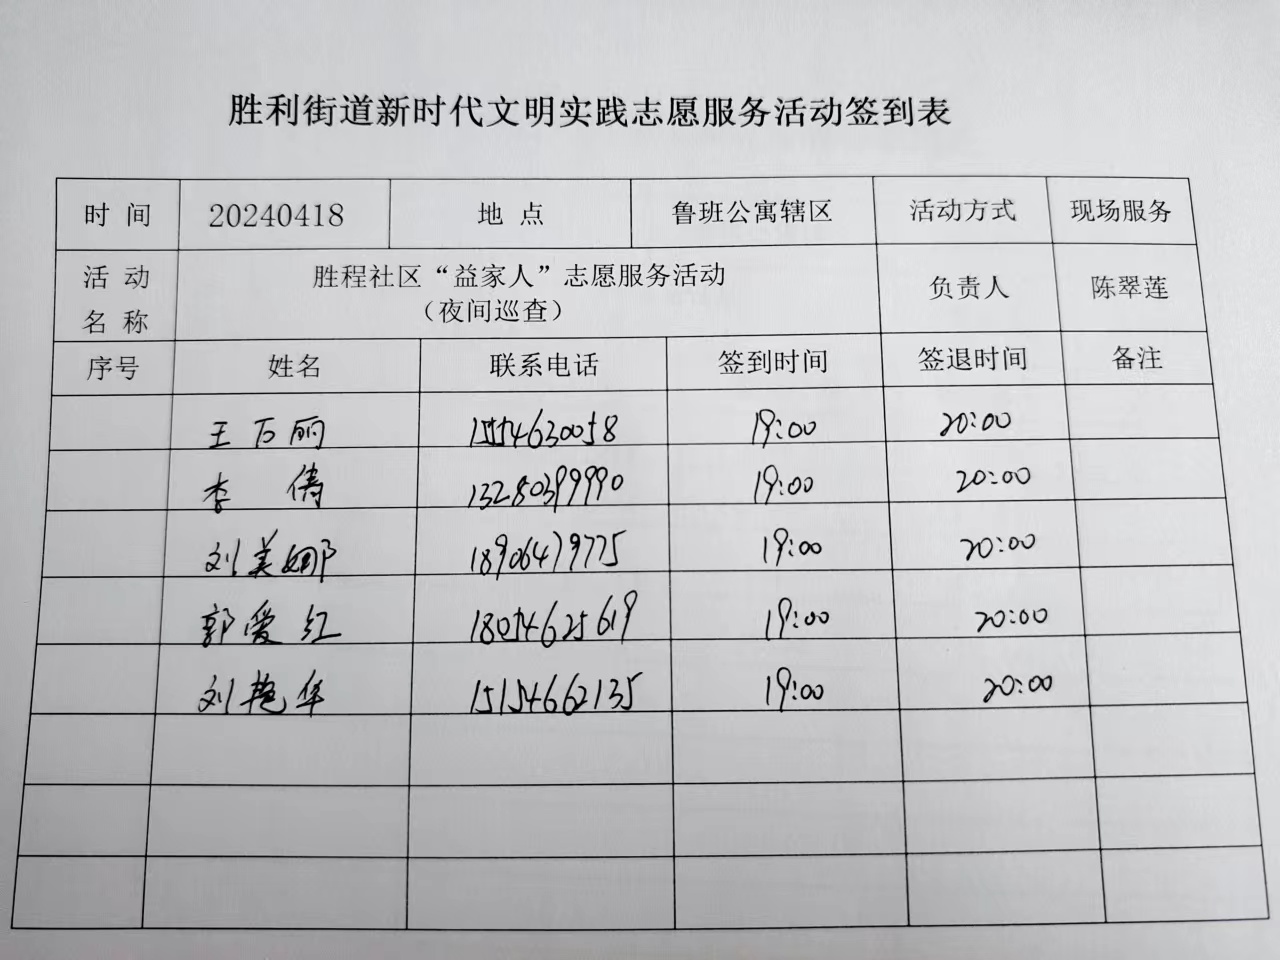 胜利街道新时代文明实践志愿服务活动签到表
时 间 20240418 地 点 鲁班公寓辖区 活动方式 现场服务
活 动 名 称 胜程社区“益家人”志愿服务活动 （夜间巡查） 负责人 陈翠莲
序号 姓名 联系电话 签到时间 签退时间 备注
王万丽 15554630058 19:00 20:00
李 倩 13280399990 19:00 20:00
刘美娜 18906479775 19:00 20:00
郭爱红 18054625619 19:00 20:00
刘艳华 15154662135 19:00 20:00